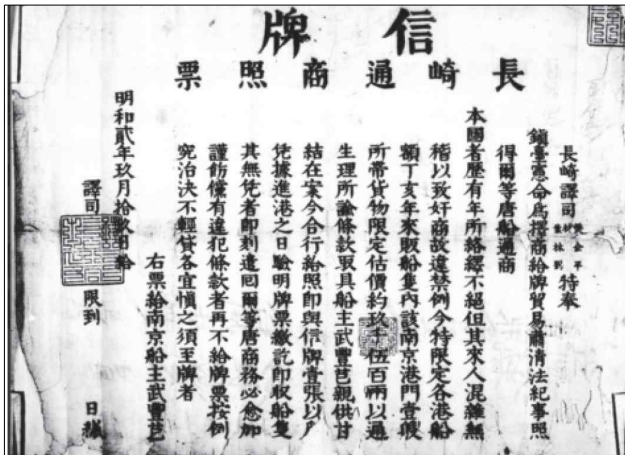 信牌
長崎通商照票
長崎譯司 特奉
鎮臺憲命爲擇商給牌貿易肅清法紀事照
得爾等唐船通商
本國者歷有年所絡繹不絕但其來人混雜無
稽以致奸商故違禁例今特限定各港船
額丁亥年來販船隻內該南京港門壹艘
所帶貨物限定估價約玖千伍百兩以通
生理所諭條款取具船主武豊芭親供甘
結在案今合行給照即與信牌壹張以爲
凭據進港之日驗明牌票繳訖即收船隻
其無凭者即刻遣回爾等唐商務必愈加
謹飭儻有違犯條款者再不給牌票按例
究治決不輕貸各宜慎之須至牌者
右票給南京船主武豊芭
明和貳年玖月拾日給
譯司 限到 日繳